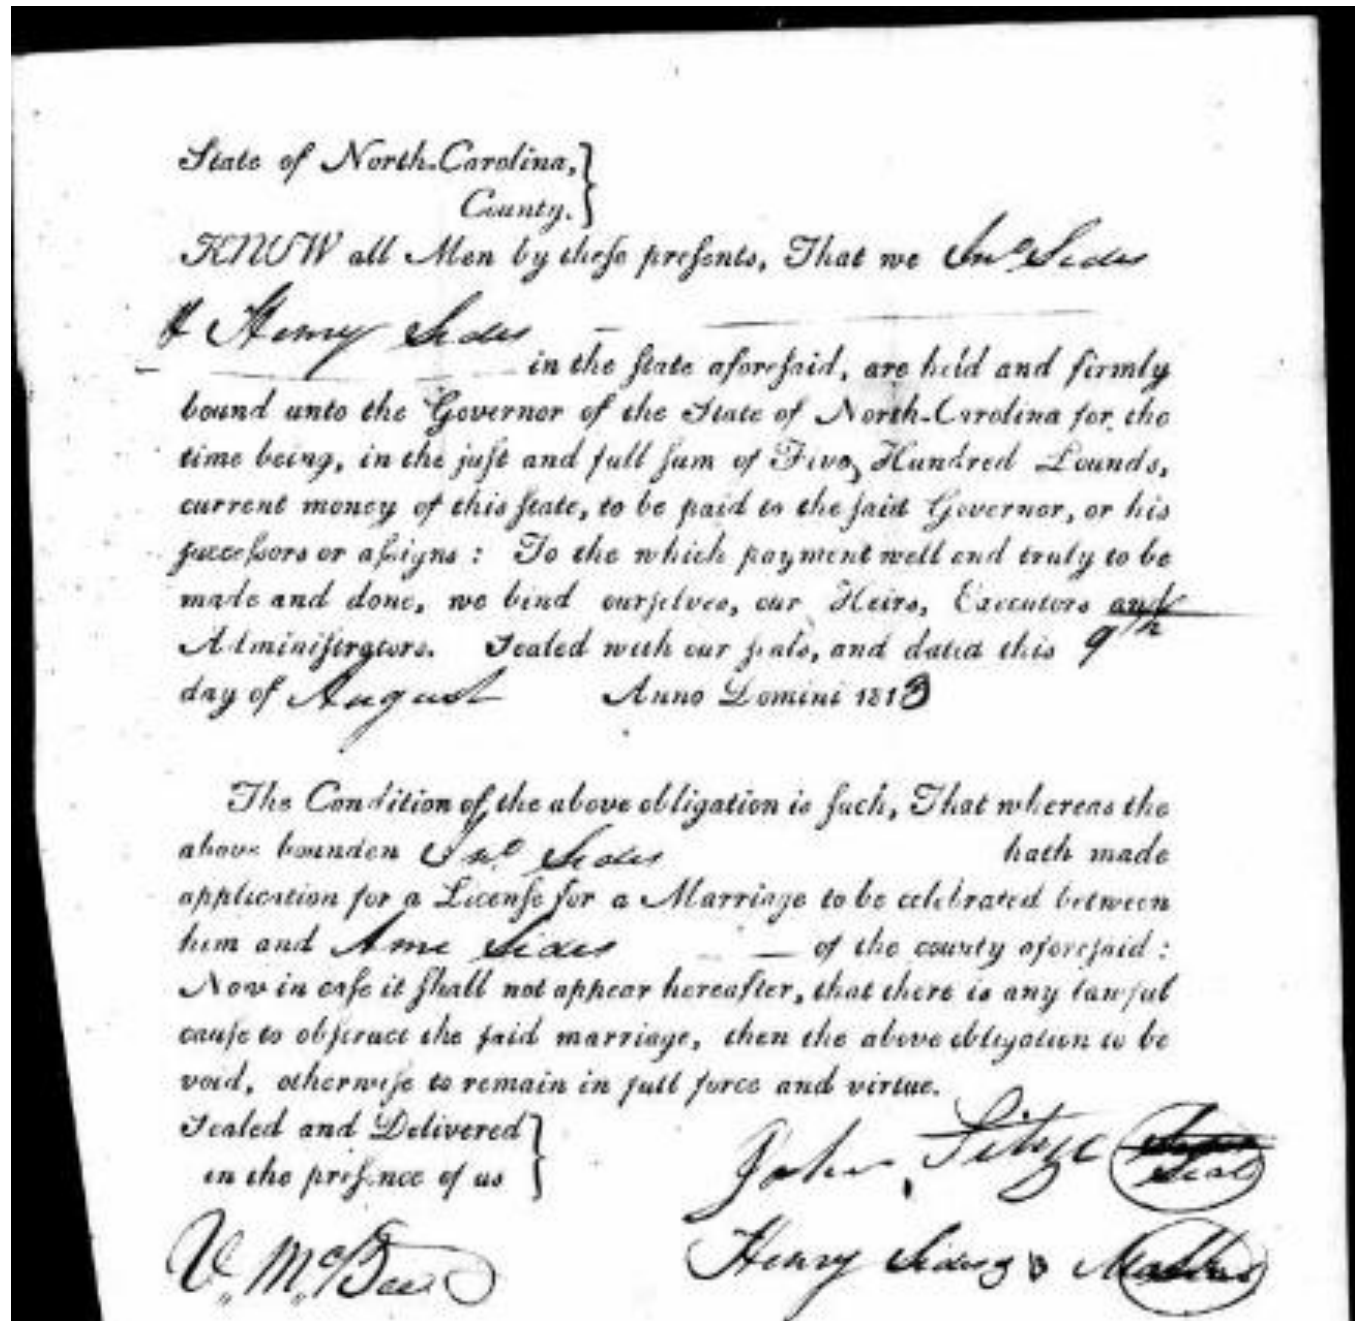 State of North-Carolina,
County.
KNOW all Men by theſe preſents, That we Jno Sides
& Henry Sides
in the ſtate aforeſaid, are held and firmly
bound unto the Governor of the State of North-Carolina for the
time being, in the juſt and full ſum of Five Hundred Pounds,
current money of this ſtate, to be paid to the ſaid Governor, or his
ſucceſſors or aſſigns: To the which payment well and truly to be
made and done, we bind ourſelves, our Heirs, Executors and
Adminiſtrators. Sealed with our ſeals, and dated this 9th
day of August Anno Domini 1813
The Condition of the above obligation is ſuch, That whereas the
above bounden Jno Sides hath made
application for a Licenſe for a Marriage to be celebrated between
him and Ame Sides of the county aforeſaid:
Now in caſe it ſhall not appear hereafter, that there is any lawful
cauſe to obſtruct the ſaid marriage, then the above obligation to be
void, otherwiſe to remain in full force and virtue.
Sealed and Delivered
in the preſence of us
John Seal
V. McBee
Henry Sides